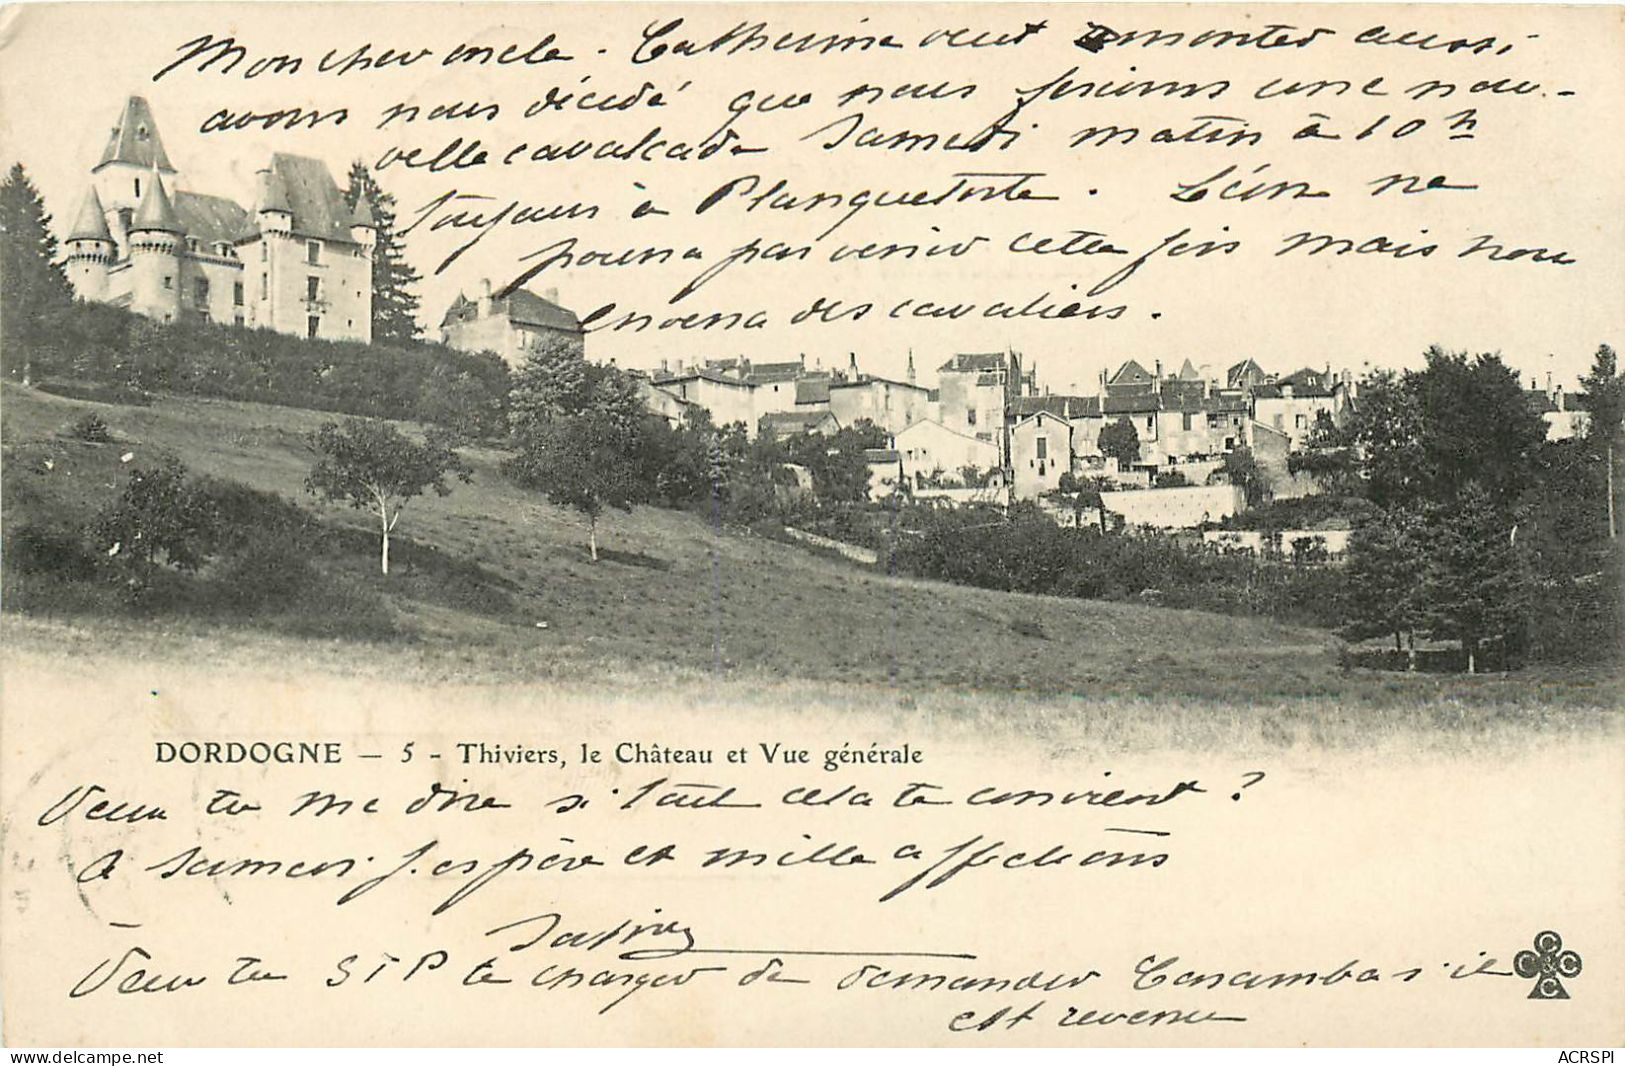 Mon cher oncle. Catherine veut monter aussi
avons nous décidé que nous ferions une nou-
velle cavalcade Samedi matin à 10 h
toujours à Planquetorte. Léon ne
pourra pas venir cette fois mais nous
enverra des cavaliers.
DORDOGNE — 5 - Thiviers, le Château et Vue générale
Veux tu me dire si tout cela te convient ?
à samedi j'espère et mille affections
Veux tu STP te charger de demander Caramba s'il
est revenu
C C & C C
www.delcampe.net
ACRSPI